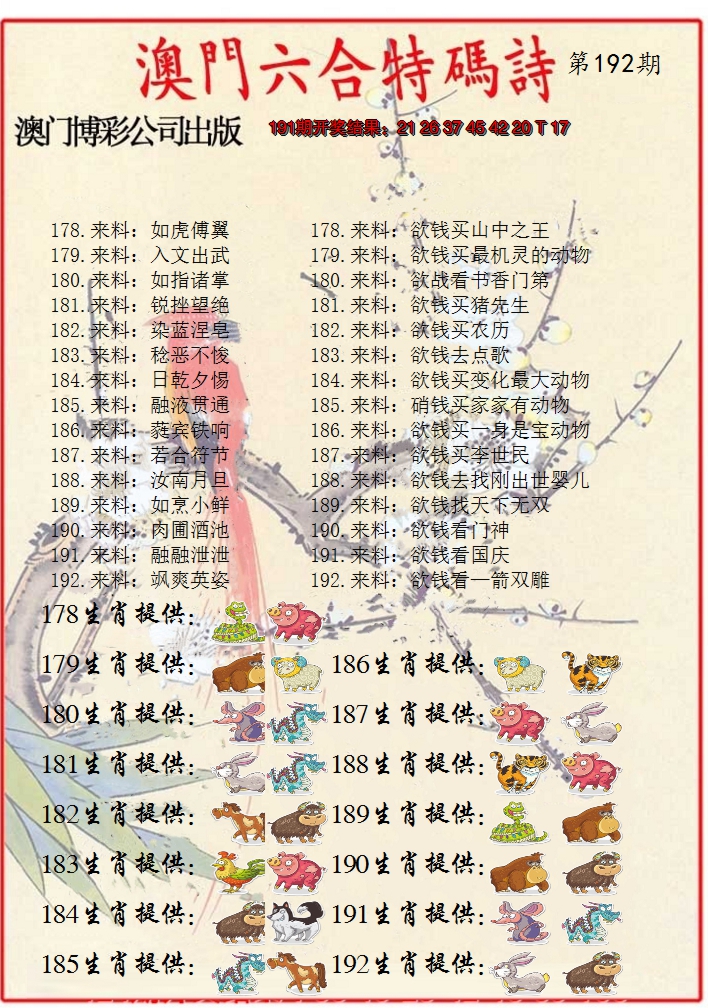 澳門六合特碼詩 第192期
澳门博彩公司出版 191期开奖结果：21 26 37 45 42 20 T 17
178.来料：如虎傅翼 178.来料：欲钱买山中之王
179.来料：入文出武 179.来料：欲钱买最机灵的动物
180.来料：如指诸掌 180.来料：欲战看书香门第
181.来料：锐挫望绝 181.来料：欲钱买猪先生
182.来料：染蓝涅皂 182.来料：欲钱买农历
183.来料：稔恶不悛 183.来料：欲钱去点歌
184.来料：日乾夕惕 184.来料：欲钱买变化最大动物
185.来料：融液贯通 185.来料：硝钱买家家有动物
186.来料：蕤宾铁响 186.来料：欲钱买一身是宝动物
187.来料：若合符节 187.来料：欲钱买李世民
188.来料：汝南月旦 188.来料：欲钱去找刚出世婴儿
189.来料：如烹小鲜 189.来料：欲钱找天下无双
190.来料：肉圃酒池 190.来料：欲钱看门神
191.来料：融融泄泄 191.来料：欲钱看国庆
192.来料：飒爽英姿 192.来料：欲钱看一箭双雕
178生肖提供：
179生肖提供： 186生肖提供：
180生肖提供： 187生肖提供：
181生肖提供： 188生肖提供：
182生肖提供： 189生肖提供：
183生肖提供： 190生肖提供：
184生肖提供： 191生肖提供：
185生肖提供： 192生肖提供：